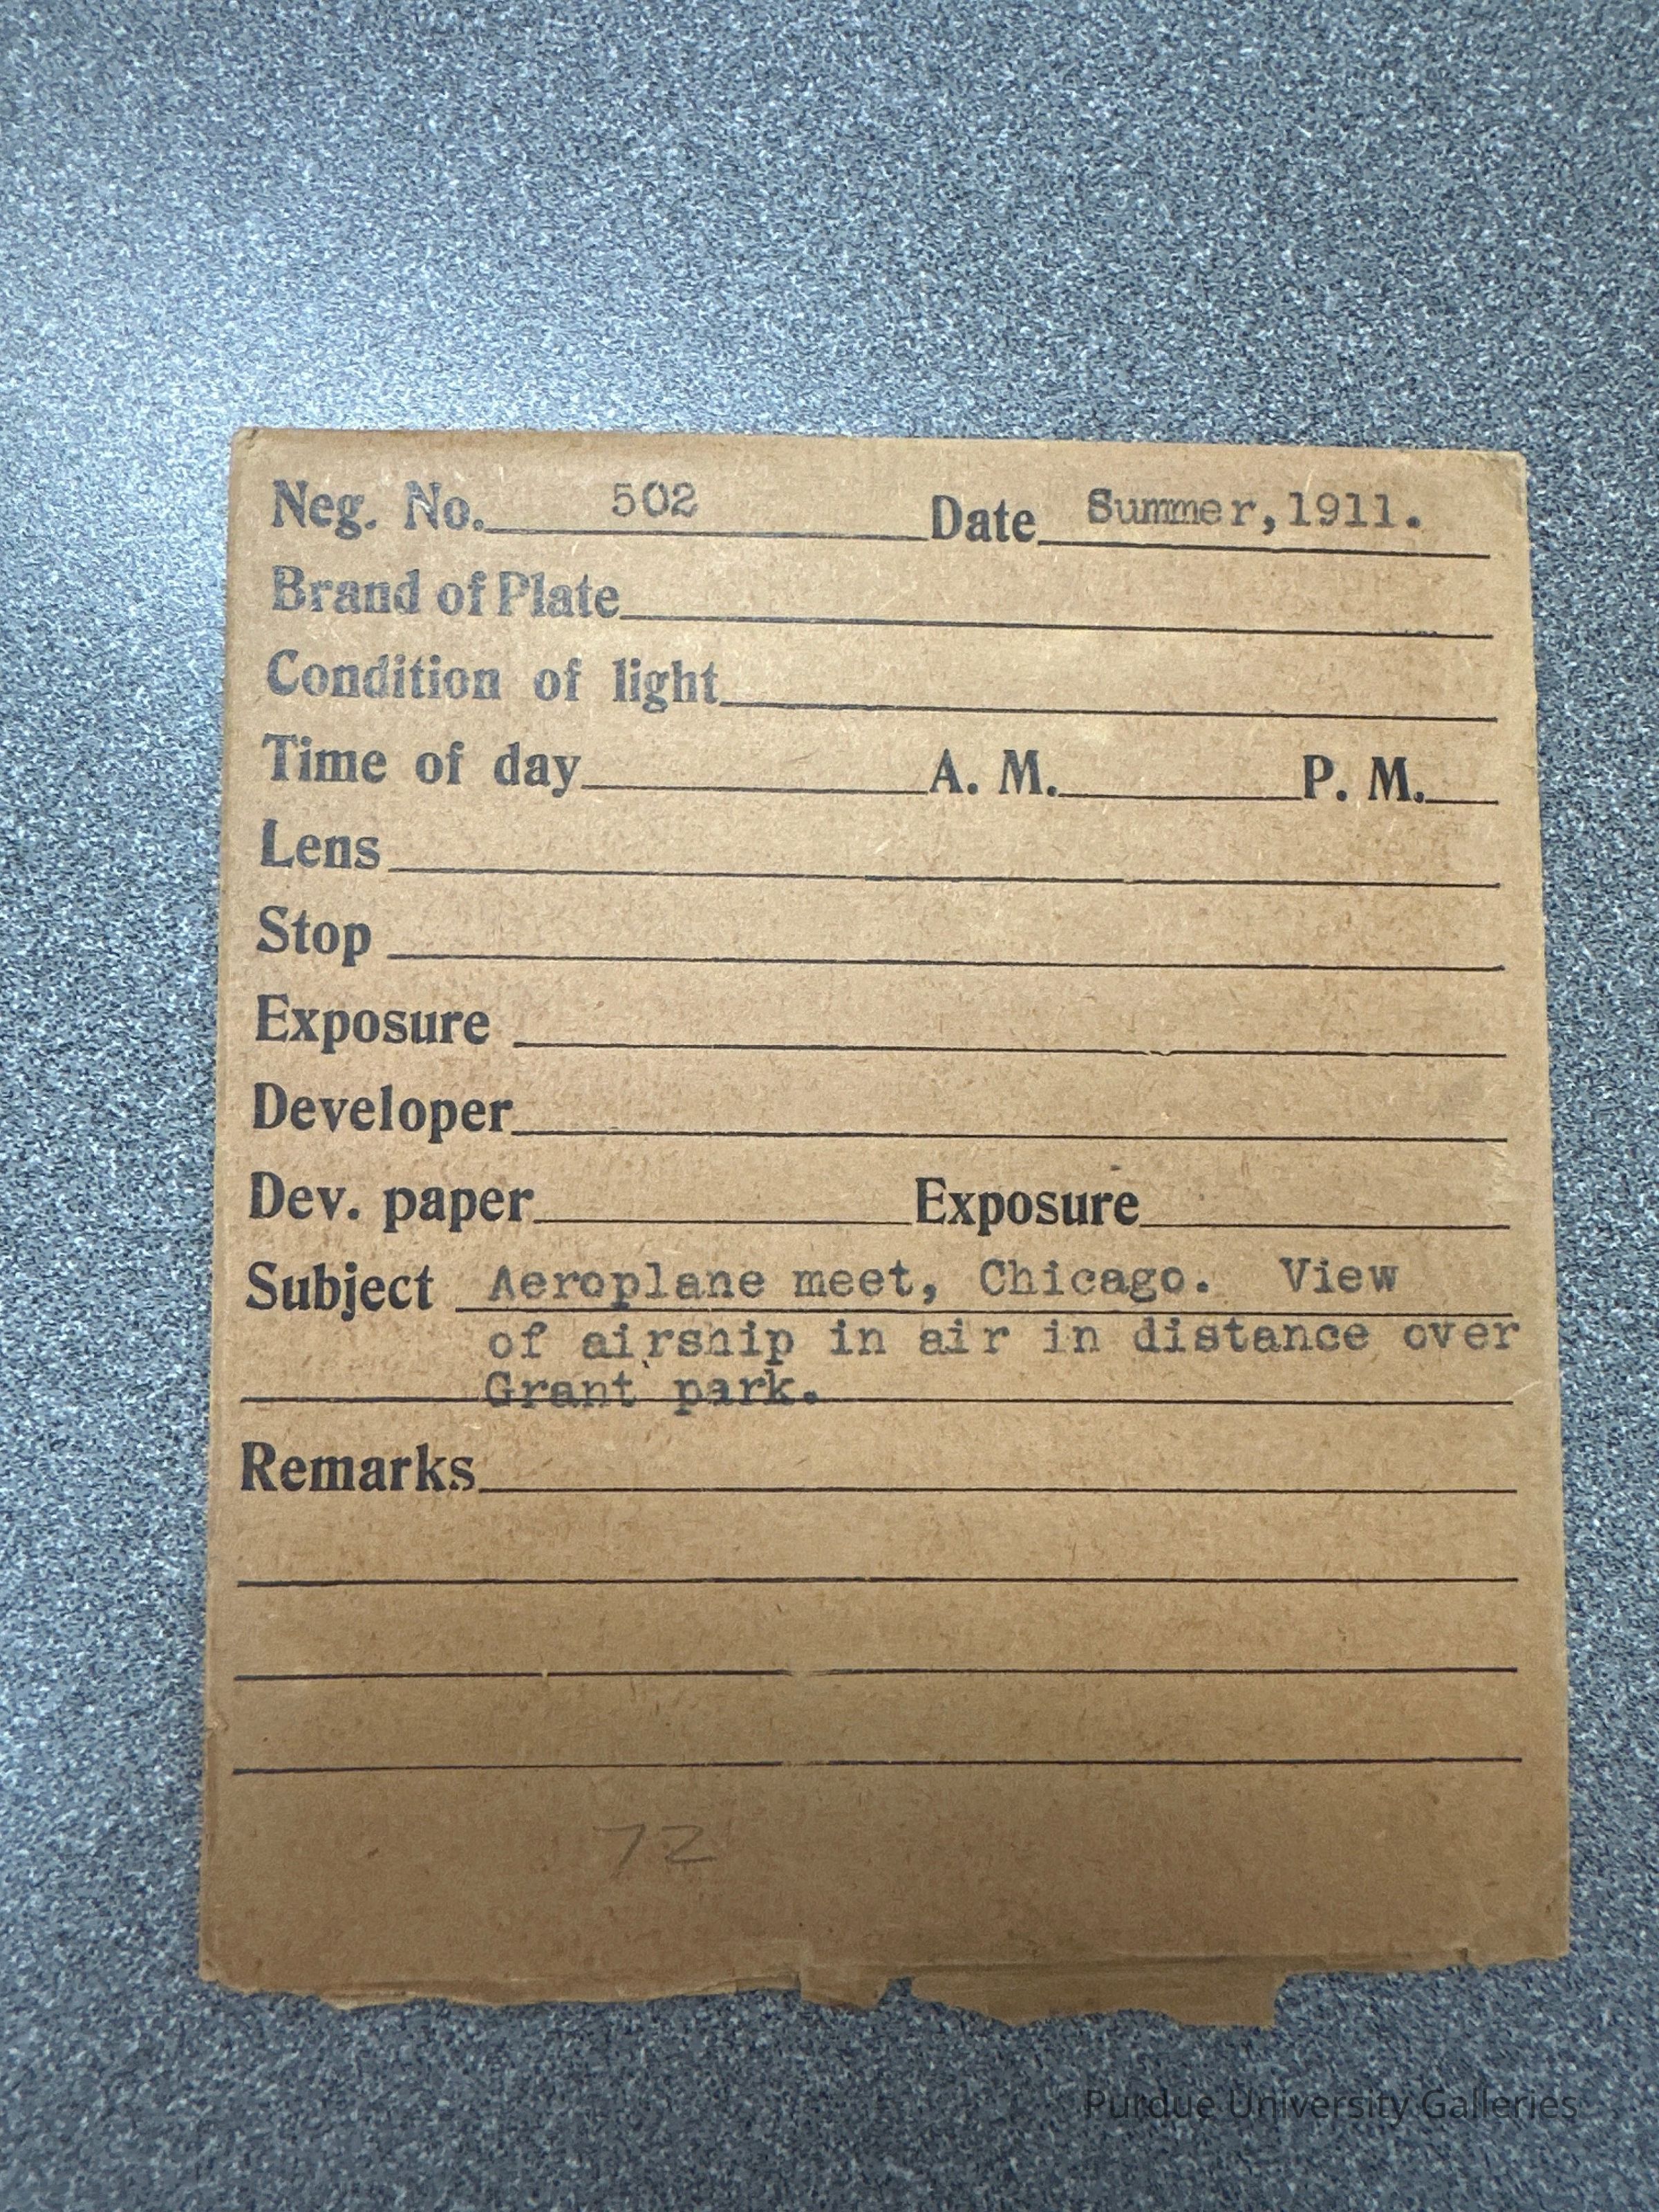 Neg. No. 502 Date Summer, 1911.
Brand of Plate
Condition of light
Time of day A. M. P. M.
Lens
Stop
Exposure
Developer
Dev. paper Exposure
Subject Aeroplane meet, Chicago. View
of airship in air in distance over
Grant park.
Remarks
72
Purdue University Galleries